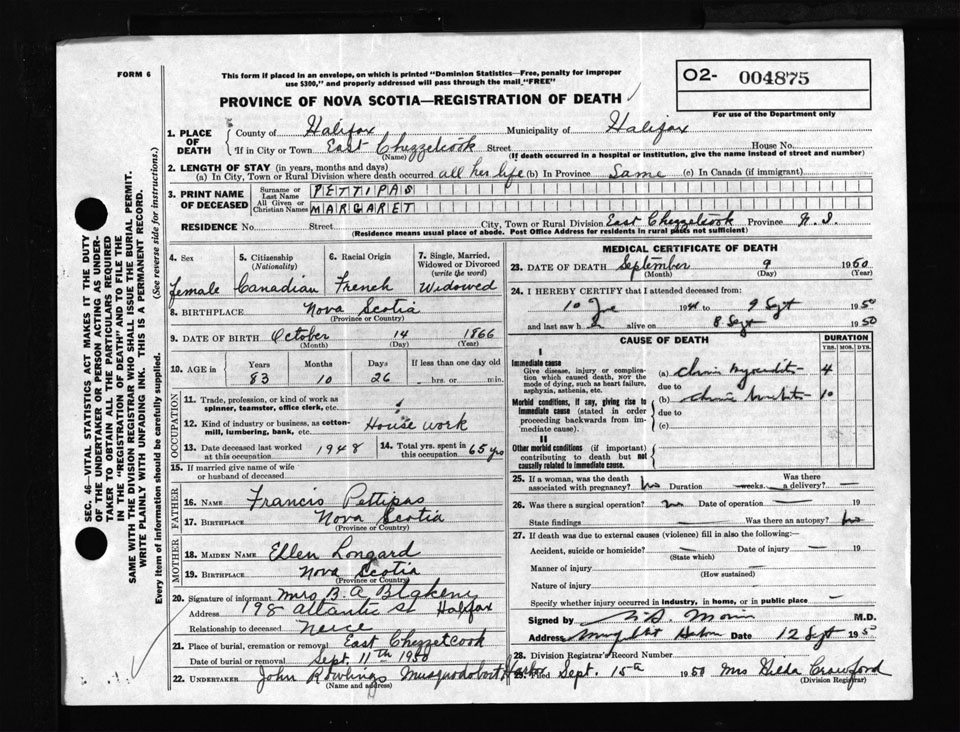 FORM 6
This form if placed in an envelope, on which is printed "Dominion Statistics—Free, penalty for improper
use $300," and properly addressed will pass through the mail "FREE"
O2- 004875
For use of the Department only
PROVINCE OF NOVA SCOTIA—REGISTRATION OF DEATH
1. PLACE OF DEATH
County of Halifax Municipality of Halifax
If in City or Town East Chezzetcook Street House No.
(Name) (If death occurred in a hospital or institution, give the name instead of street and number)
2. LENGTH OF STAY (in years, months and days)
(a) In City, Town or Rural Division where death occurred all her life (b) In Province Same (c) In Canada (if immigrant)
3. PRINT NAME OF DECEASED
Surname or Last Name PETTIPAS
All Given or Christian Names MARGARET
RESIDENCE No. Street City, Town or Rural Division East Chezzetcook Province N.S.
(Residence means usual place of abode. Post Office Address for residents in rural parts not sufficient)
4. Sex
female
5. Citizenship (Nationality)
Canadian
6. Racial Origin
French
7. Single, Married, Widowed or Divorced (write the word)
Widowed
8. BIRTHPLACE Nova Scotia
(Province or Country)
9. DATE OF BIRTH October 14 1866
(Month) (Day) (Year)
10. AGE in Years Months Days If less than one day old
83 10 26 hrs. or min.
OCCUPATION
11. Trade, profession, or kind of work as
spinner, teamster, office clerk, etc.
12. Kind of industry or business, as cotton-
mill, lumbering, bank, etc. House work
13. Date deceased last worked
at this occupation 1948
14. Total yrs. spent in
this occupation 65 yrs
15. If married give name of wife
or husband of deceased
FATHER
16. NAME Francis Pettipas
17. BIRTHPLACE Nova Scotia
(Province or Country)
MOTHER
18. MAIDEN NAME Ellen Longard
19. BIRTHPLACE Nova Scotia
(Province or Country)
20. Signature of informant Mrs B. A. Blakeny
Address 198 Atlantic St Halifax
Relationship to deceased Neice
21. Place of burial, cremation or removal East Chezzetcook
Date of burial or removal Sept. 11th 1950
22. UNDERTAKER John Rowlings Musquodoboit Harbor
(Name and address)
MEDICAL CERTIFICATE OF DEATH
23. DATE OF DEATH September 9 1950
(Month) (Day) (Year)
24. I HEREBY CERTIFY that I attended deceased from:
10 19 to 9 Sept 1950
and last saw h er alive on 8 Sept 1950
CAUSE OF DEATH
DURATION
YRS. MOS. DYS.
I
Immediate cause
Give disease, injury or complica-
tion which caused death, not the
mode of dying, such as heart failure,
asphyxia, asthenia, etc.
(a) chronic myocarditis 4
due to
Morbid conditions, if any, giving rise to
immediate cause (stated in order
proceeding backwards from im-
mediate cause).
(b) chronic 10
due to
(c)
II
Other morbid conditions (if important)
contributing to death but not
causally related to immediate cause.
25. If a woman, was the death
associated with pregnancy? No Duration weeks.
Was there
a delivery? —
26. Was there a surgical operation? no Date of operation — 19
State findings — Was there an autopsy? No
27. If death was due to external causes (violence) fill in also the following:—
Accident, suicide or homicide? — Date of injury — 19
(State which)
Manner of injury —
(How sustained)
Nature of injury
Specify whether injury occurred in industry, in home, or in public place —
Signed by M.D.
Address Date 12 Sept 1950
28. Division Registrar's Record Number
29. Filed Sept. 15th 1950 Mrs Hilda Crawford
(Division Registrar)
SEC. 46—VITAL STATISTICS ACT MAKES IT THE DUTY
OF THE UNDERTAKER OR PERSON ACTING AS UNDER-
TAKER TO OBTAIN ALL THE PARTICULARS REQUIRED
IN THE "REGISTRATION OF DEATH" AND TO FILE THE
SAME WITH THE DIVISION REGISTRAR WHO SHALL ISSUE THE BURIAL PERMIT.
WRITE PLAINLY WITH UNFADING INK. THIS IS A PERMANENT RECORD.
Every item of information should be carefully supplied. (See reverse side for instructions.)